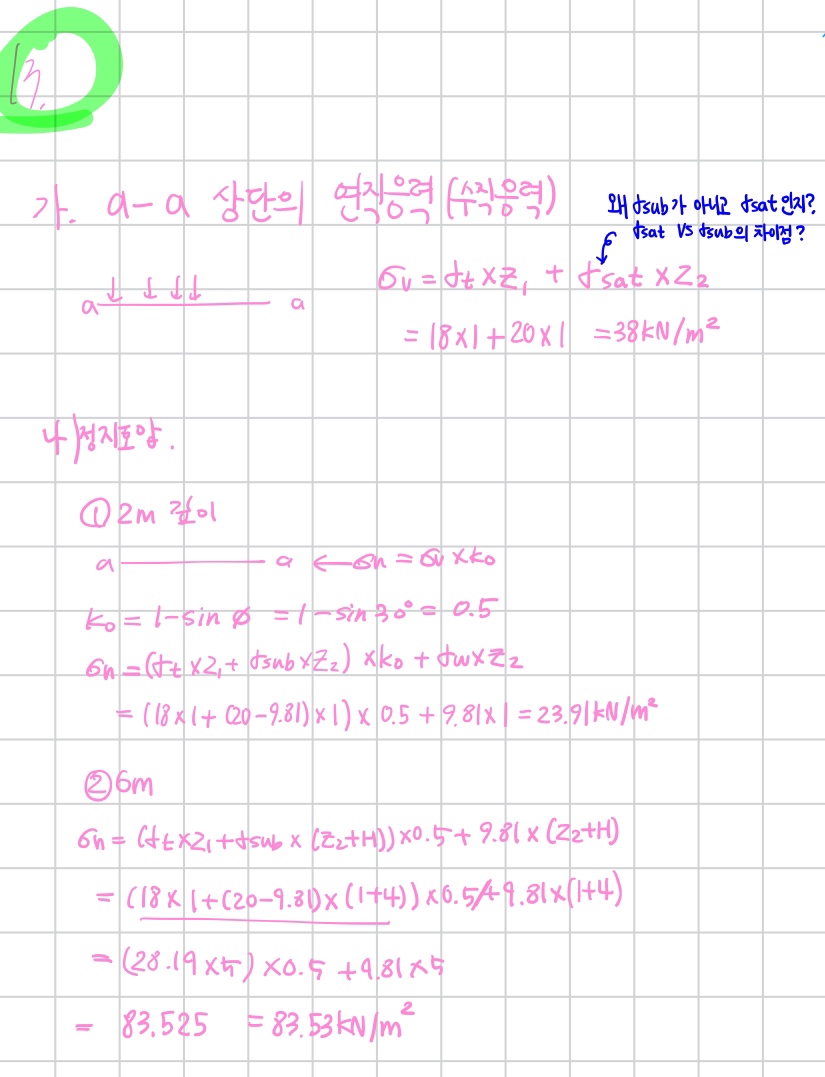 13.
가. a-a 상단의 연직응력 (수직응력)
왜 γsub가 아니고 γsat 인지?
γsat VS γsub의 차이점?
a ↓ ↓ ↓↓ a
σv = γt × Z1 + γsat × Z2
= 18×1 + 20×1 = 38kN/m²
나) 정지토압.
① 2m 깊이
a a ← σh = σv × k0
k0 = 1-sin ϕ = 1-sin30° = 0.5
σh = (γt × Z1 + γsub × Z2) × k0 + γw × Z2
= (18×1 + (20-9.81)×1) × 0.5 + 9.81×1 = 23.91kN/m²
② 6m
σh = (γt × Z1 + γsub × (Z2+H)) × 0.5 + 9.81 × (Z2+H)
= (18 × 1 + (20-9.81) × (1+4)) × 0.5 + 9.81 × (1+4)
= (28.19 × 5) × 0.5 + 9.81 × 5
= 83.525 = 83.53kN/m²